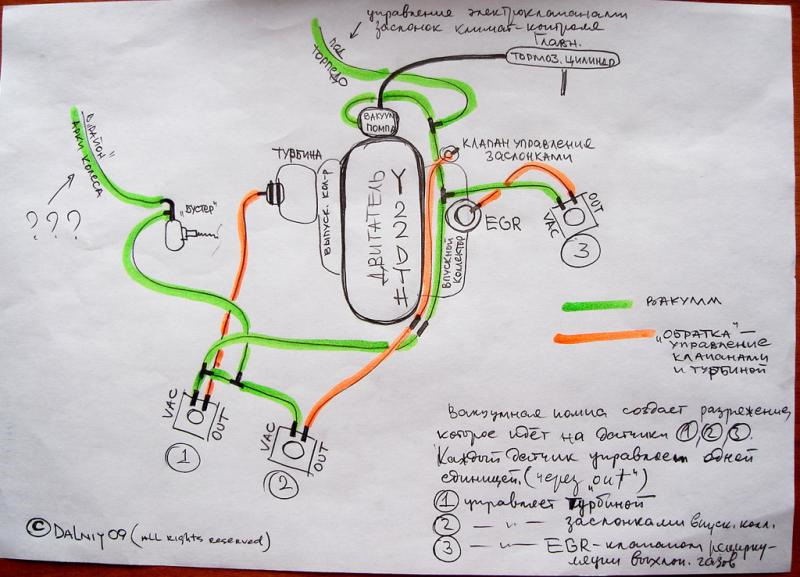 управление электроклапанами
заслонок климат-контроля
под
торпедо
Главн.
тормоз. цилиндр
вакуум
помпа
"в район"
арки колеса
???
"бустер"
турбина
выпуск. кол-р
двигатель
Y22DTH
клапан управления
заслонками
EGR
впускной
коллектор
VAC
OUT
3
VAC
OUT
1
VAC
OUT
2
вакуум
"обратка" —
управление
клапанами
и турбиной
Вакуумная помпа создает разрежение,
которое идёт на датчики 1, 2, 3.
Каждый датчик управляет одной
единицей. (через "out")
1 управляет турбиной
2 — " — заслонками впуск. колл.
3 — " — EGR-клапаном рецирку-
ляции выхлоп. газов
© DALNIY09 (All rights reserved)